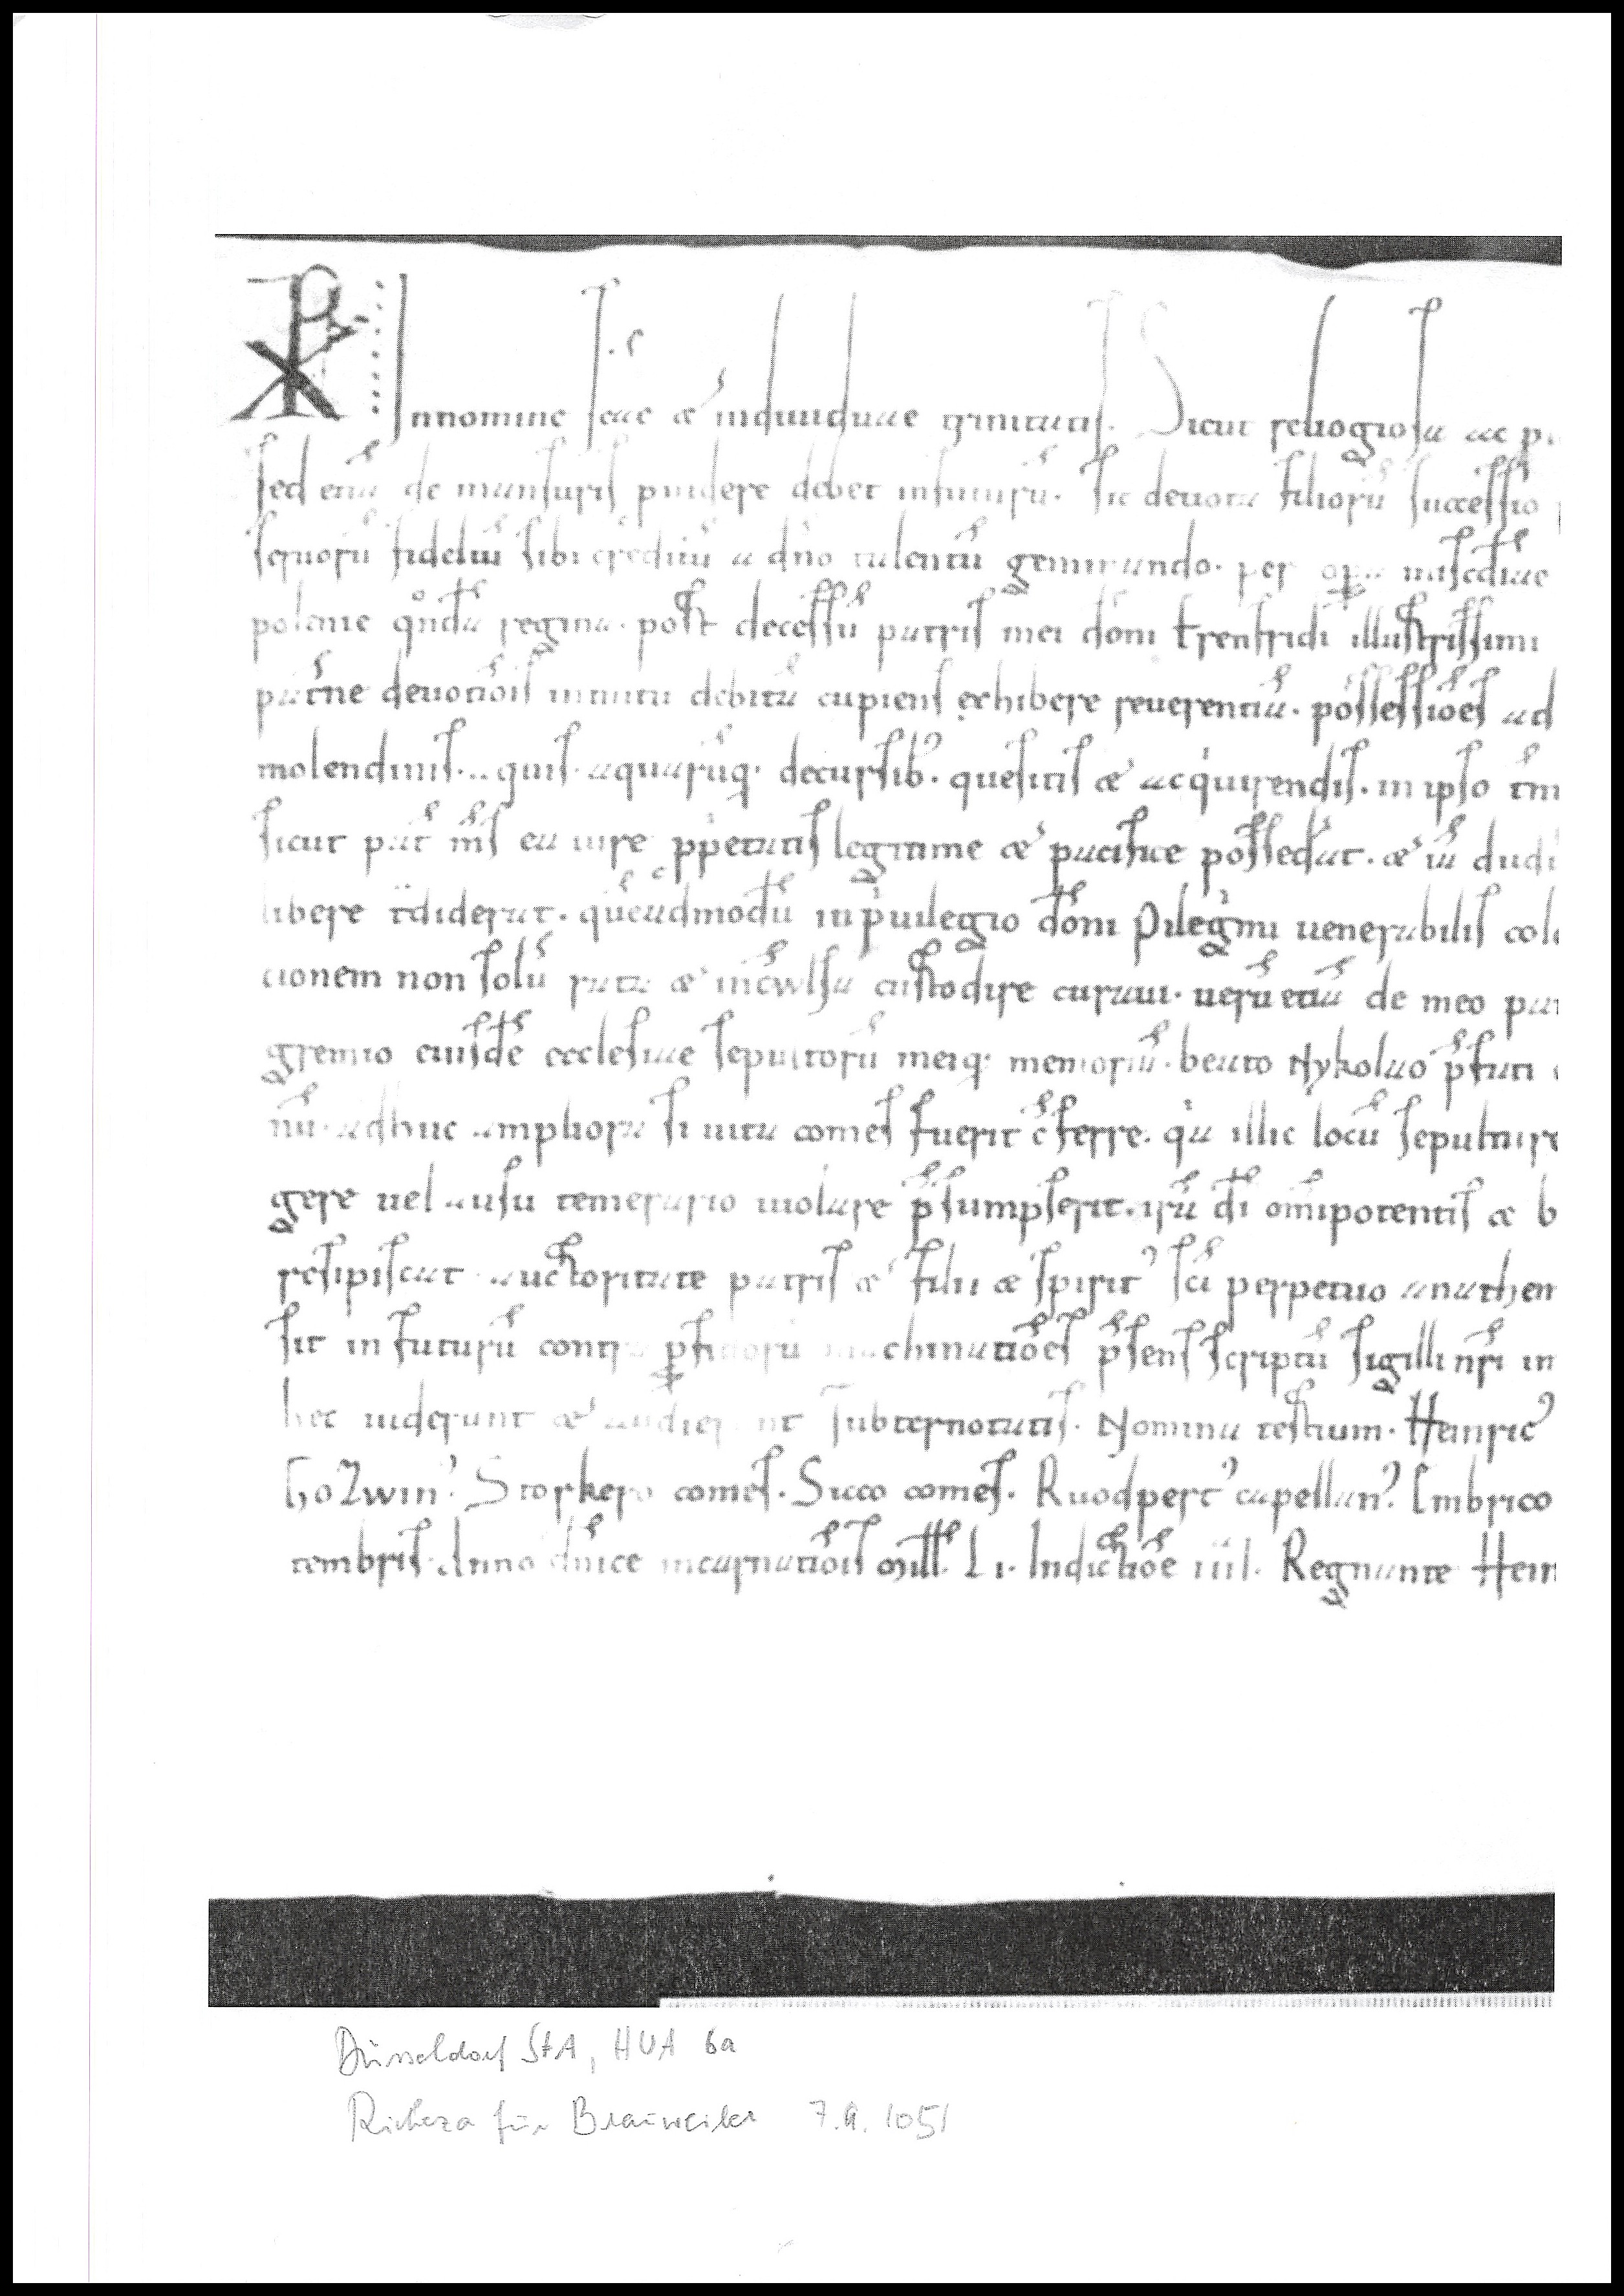 In nomine sc̄ae & indiuiduae trinitatis. Sicut religiosa ac p
sed etiā de mansuris puidere debet in futurū. sic deuota filiorū successio
seruorū fideliū sibi creditū a dn̄o talentū geminando. per misc̄diae
polonie qn̊dā regina. post decessū patris mei dōni Erenfridi illustrissimi
pat̄ne deuotiōis intuitu debitā cupiens exhibere reuerentiā. possessiōes ad
molendinis. aquis. aquarūq; decursib᾽. quesitis & acquirendis. in ipso
sicut pat̄ m̄s ea iure ppetratis legitime & pacifice possedat. & iā dudū
libere t̄diderat. quēadmodū in puilegio dōni Piligrimi uenerabilis colo
cionem non solū ratā & incōwlsā custodire curaui. uerū etiā de meo pat
gremio eiusdē ecclesiae sepultorū meiq; memoriā. beato Nykolao p̄fati
nū. adhuc ampliora si uita comes fuerit c̄ferre. qa illic locū sepulture
gere uel ausu temerario uiolare p̄sumpserit. irā dī om̄ipotentis & b
resipiscat auctoritate patris & filii & spirit᾽ sc̄i perpetuo anathem
sit in futurū contra machinatiōes p̄sens scriptū sigilli nr̄i im
hec uiderunt & audierunt subternotatis. Nomina testium. Heinric᾽
Gozwin᾽. Storkero comes. Sicco comes. Ruodpert᾽ capellan᾽. Embrico
tembris. Anno dn̄ice incarnatiōis mill. LI. Indictiōe iiii. Regnante Hein
Düsseldorf StA, HUA 6a
Richeza für Brauweiler 7.9. 1051